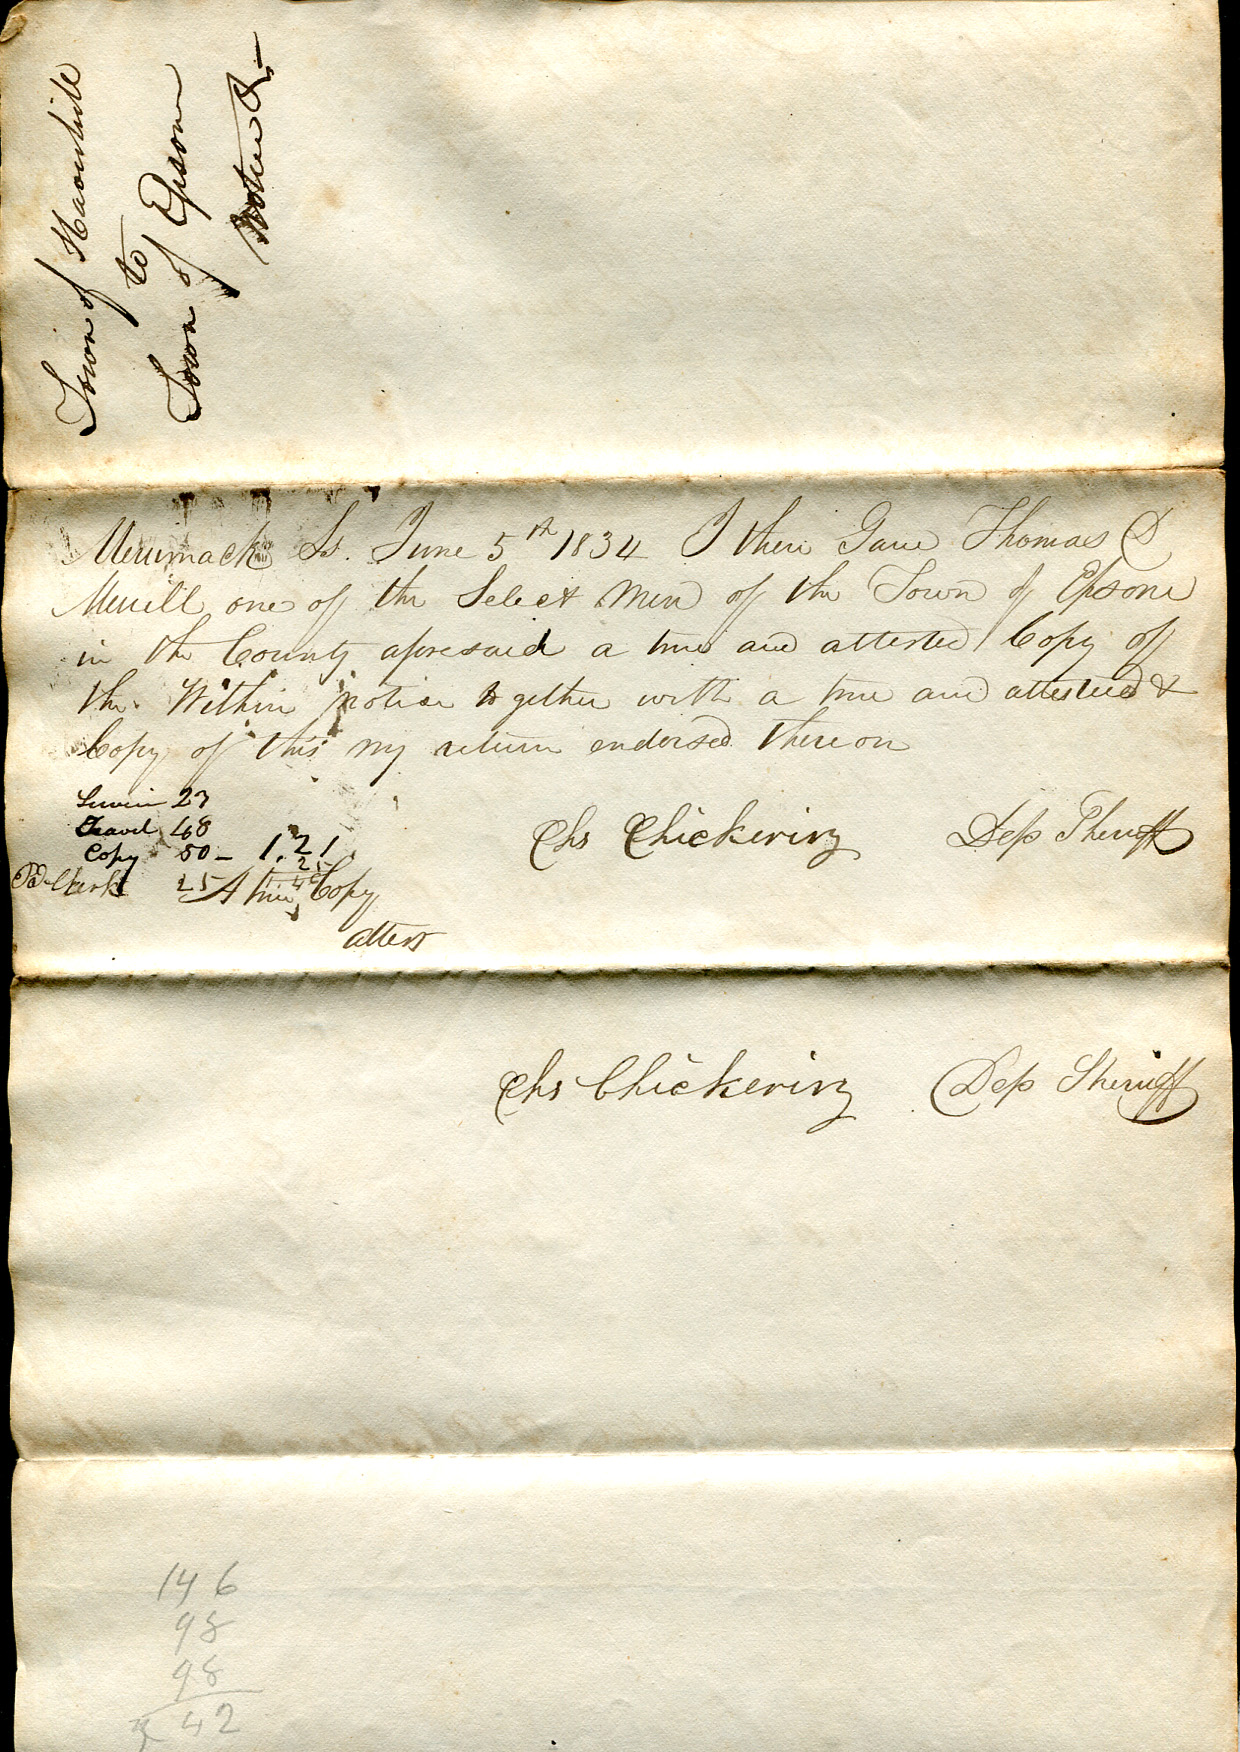 Town of Haverhill
to
Town of Epsom
Notice &
Merrimack Ss. June 5th 1834 I then Gave Thomas D
Merrill one of the Select Men of the Town of Epsom
in the County aforesaid a true and attested Copy of
the Within notice together with a true and attested
Copy of this my return endorsed thereon
Servic 23
Travel 48
Copy 50 - 1.21
25
Pd Clerk 25 1.46
Chs Chickering Dep Sheriff
A true Copy
attest
Chs Chickering Dep Sheriff
146
98
98
3 42